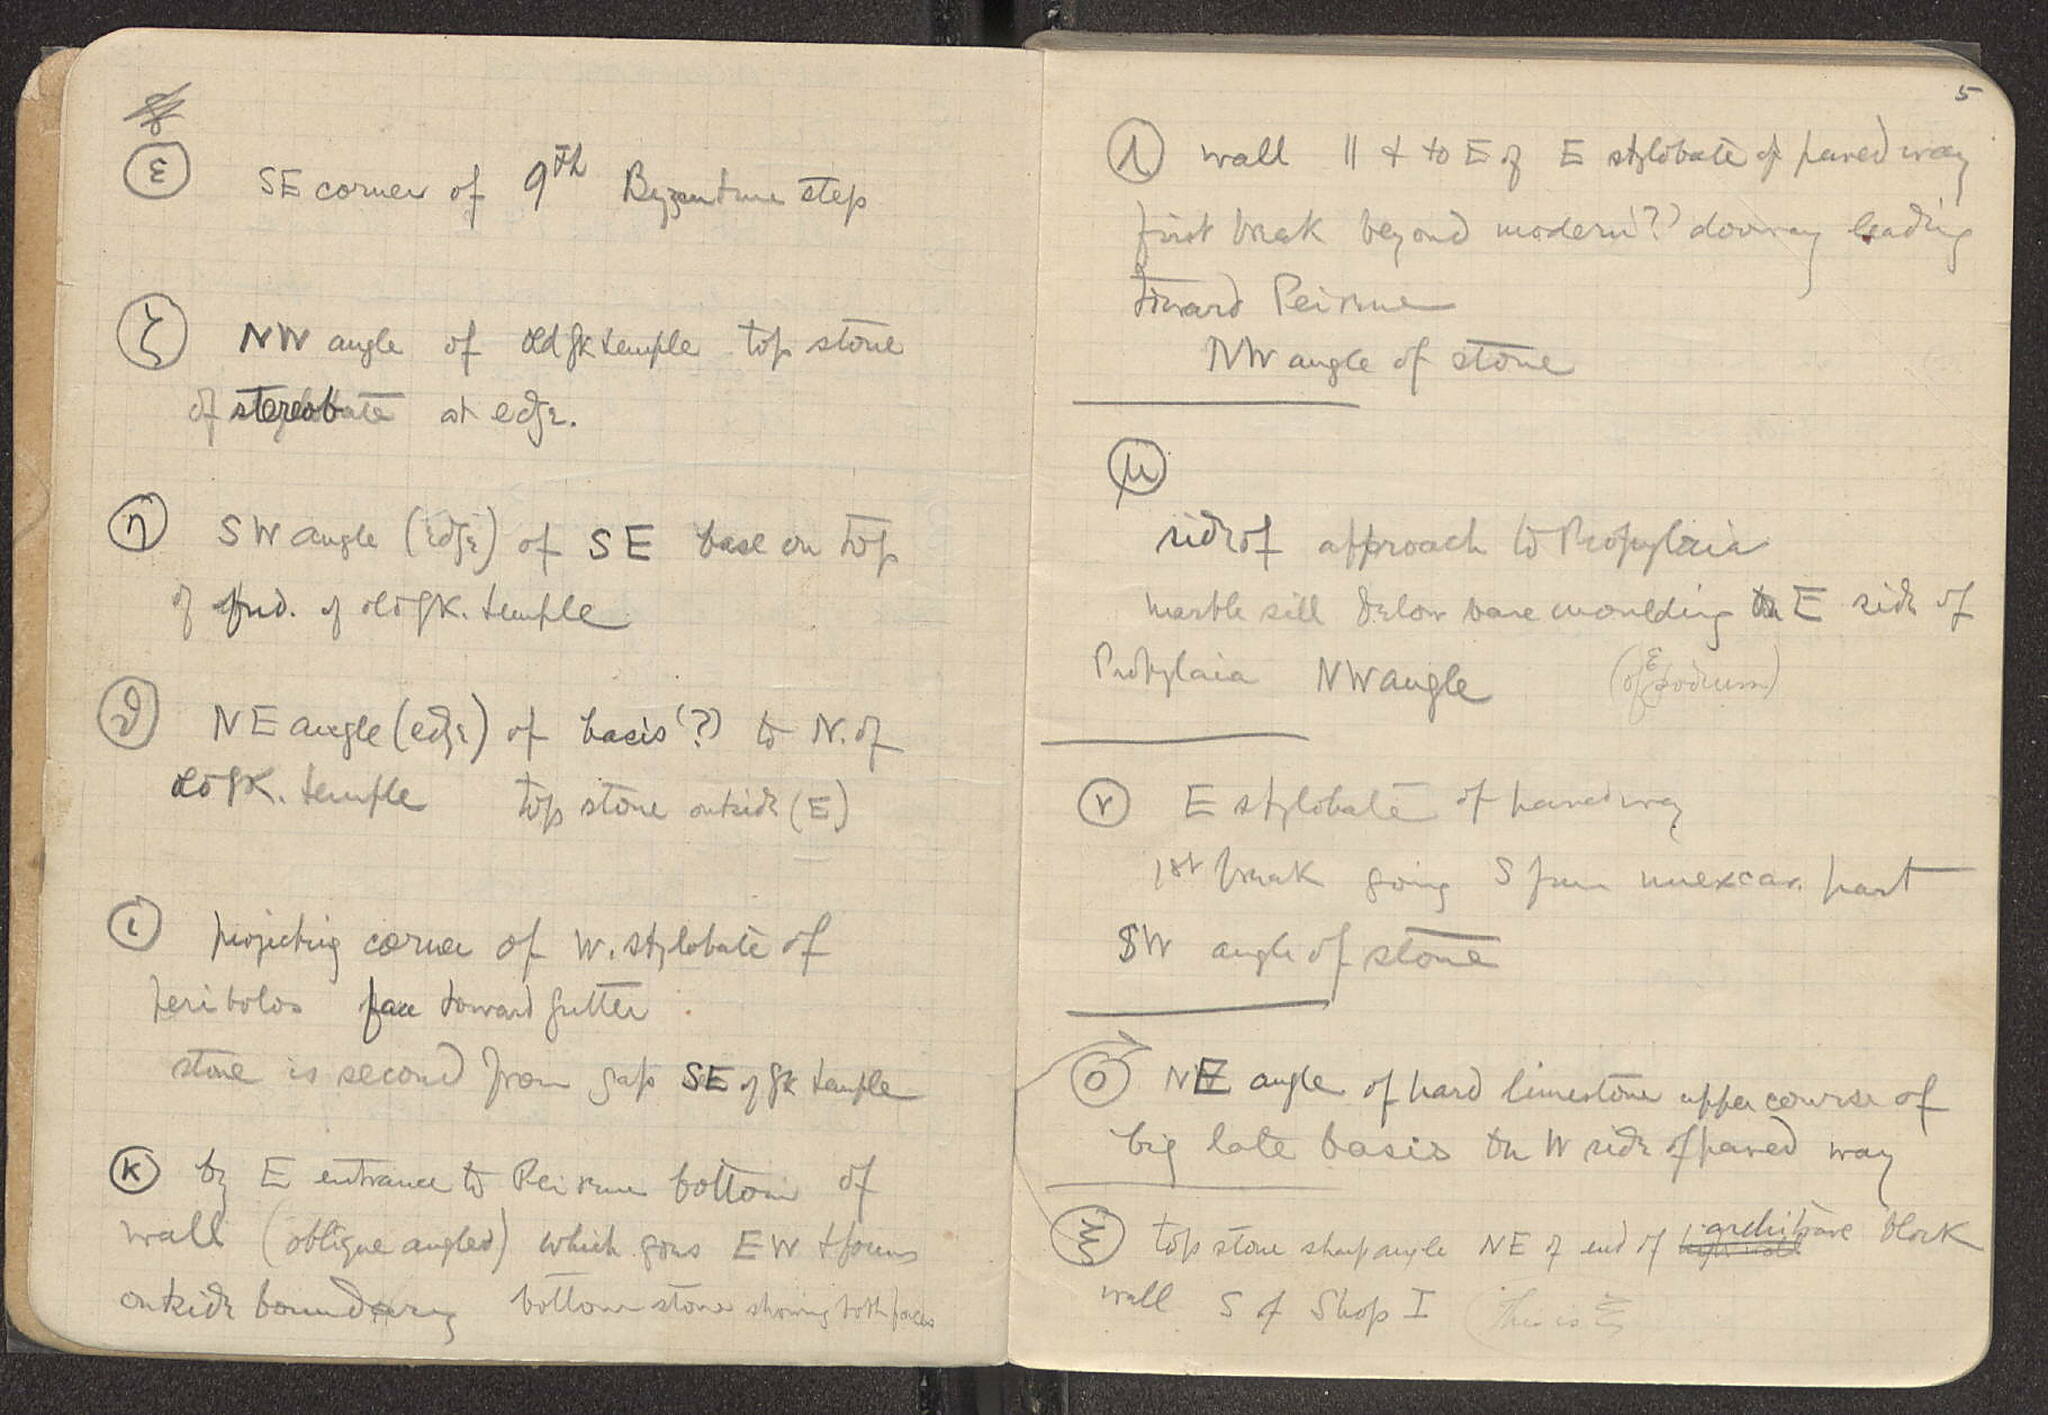 ε SE corner of 9th Byzantine step
ζ NW angle of old gk temple top stone
of stereobate at edge.
η SW angle (edge) of SE base on top
of fnd. of old gk. temple
θ NE angle (edge) of basis (?) to N. of
old gk. temple top stone outside (E)
ι projecting corner of W. stylobate of
peribolos face toward gutter
stone is second from gap SE of gk temple
κ by E entrance to Peirene bottom of
wall (oblique angled) which goes EW & forms
outside boundary bottom stone showing both faces
5
λ wall || & to E of E stylobate of paved way
first break beyond modern (?) doorway leading
toward Peirene
NW angle of stone
μ
side of approach to Propylaia
marble sill below base moulding on E side of
Propylaia NW angle (of E podium)
ν E stylobate of paved way
1st break going S from unexcav. part
SW angle of stone
ο NE angle of hard limestone upper course of
big late basis on W side of paved way
ξ top stone sharp angle NE of end of architrave block
wall S of Shop I (This is ξ